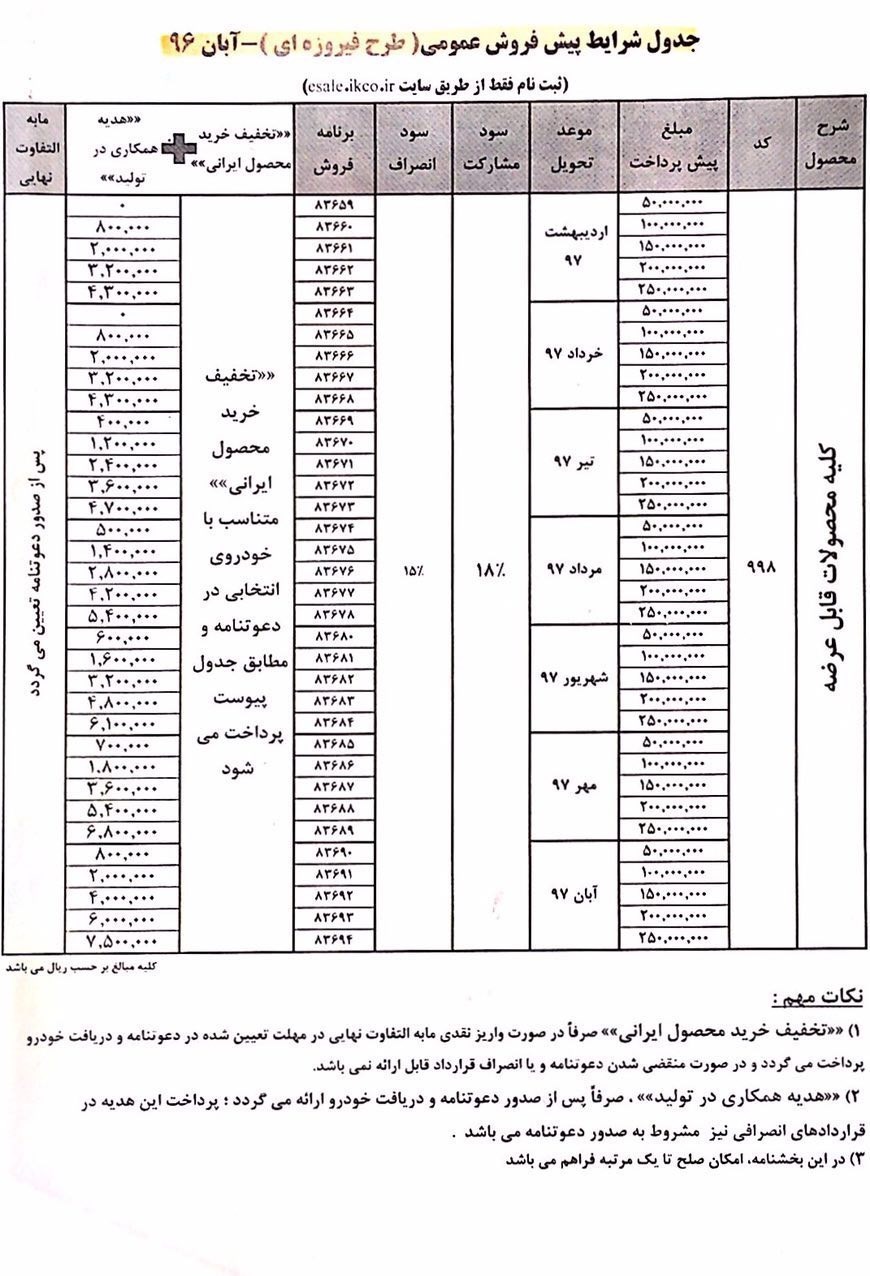 جدول شرایط پیش فروش عمومی( طرح فیروزه ای )-آبان ۹۶
(ثبت نام فقط از طریق سایت esale.ikco.ir)
شرح محصول | کد | مبلغ پیش پرداخت | موعد تحویل | سود مشارکت | سود انصراف | برنامه فروش | ««تخفیف خرید محصول ایرانی»» + ««هدیه همکاری در تولید»» | مابه التفاوت نهایی
کلیه محصولات قابل عرضه
۹۹۸
۱۸٪
۱۵٪
««تخفیف
خرید
محصول
ایرانی»»
متناسب با
خودروی
انتخابی در
دعوتنامه و
مطابق جدول
پیوست
پرداخت می
شود
پس از صدور دعوتنامه تعیین می گردد
اردیبهشت ۹۷
۵۰,۰۰۰,۰۰۰ ۸۳۶۵۹ ۰
۱۰۰,۰۰۰,۰۰۰ ۸۳۶۶۰ ۸۰۰,۰۰۰
۱۵۰,۰۰۰,۰۰۰ ۸۳۶۶۱ ۲,۰۰۰,۰۰۰
۲۰۰,۰۰۰,۰۰۰ ۸۳۶۶۲ ۳,۲۰۰,۰۰۰
۲۵۰,۰۰۰,۰۰۰ ۸۳۶۶۳ ۴,۳۰۰,۰۰۰
خرداد ۹۷
۵۰,۰۰۰,۰۰۰ ۸۳۶۶۴ ۰
۱۰۰,۰۰۰,۰۰۰ ۸۳۶۶۵ ۸۰۰,۰۰۰
۱۵۰,۰۰۰,۰۰۰ ۸۳۶۶۶ ۲,۰۰۰,۰۰۰
۲۰۰,۰۰۰,۰۰۰ ۸۳۶۶۷ ۳,۲۰۰,۰۰۰
۲۵۰,۰۰۰,۰۰۰ ۸۳۶۶۸ ۴,۳۰۰,۰۰۰
تیر ۹۷
۵۰,۰۰۰,۰۰۰ ۸۳۶۶۹ ۴۰۰,۰۰۰
۱۰۰,۰۰۰,۰۰۰ ۸۳۶۷۰ ۱,۲۰۰,۰۰۰
۱۵۰,۰۰۰,۰۰۰ ۸۳۶۷۱ ۲,۴۰۰,۰۰۰
۲۰۰,۰۰۰,۰۰۰ ۸۳۶۷۲ ۳,۶۰۰,۰۰۰
۲۵۰,۰۰۰,۰۰۰ ۸۳۶۷۳ ۴,۷۰۰,۰۰۰
مرداد ۹۷
۵۰,۰۰۰,۰۰۰ ۸۳۶۷۴ ۵۰۰,۰۰۰
۱۰۰,۰۰۰,۰۰۰ ۸۳۶۷۵ ۱,۴۰۰,۰۰۰
۱۵۰,۰۰۰,۰۰۰ ۸۳۶۷۶ ۲,۸۰۰,۰۰۰
۲۰۰,۰۰۰,۰۰۰ ۸۳۶۷۷ ۴,۲۰۰,۰۰۰
۲۵۰,۰۰۰,۰۰۰ ۸۳۶۷۸ ۵,۴۰۰,۰۰۰
شهریور ۹۷
۵۰,۰۰۰,۰۰۰ ۸۳۶۸۰ ۶۰۰,۰۰۰
۱۰۰,۰۰۰,۰۰۰ ۸۳۶۸۱ ۱,۶۰۰,۰۰۰
۱۵۰,۰۰۰,۰۰۰ ۸۳۶۸۲ ۳,۲۰۰,۰۰۰
۲۰۰,۰۰۰,۰۰۰ ۸۳۶۸۳ ۴,۸۰۰,۰۰۰
۲۵۰,۰۰۰,۰۰۰ ۸۳۶۸۴ ۶,۱۰۰,۰۰۰
مهر ۹۷
۵۰,۰۰۰,۰۰۰ ۸۳۶۸۵ ۷۰۰,۰۰۰
۱۰۰,۰۰۰,۰۰۰ ۸۳۶۸۶ ۱,۸۰۰,۰۰۰
۱۵۰,۰۰۰,۰۰۰ ۸۳۶۸۷ ۳,۶۰۰,۰۰۰
۲۰۰,۰۰۰,۰۰۰ ۸۳۶۸۸ ۵,۴۰۰,۰۰۰
۲۵۰,۰۰۰,۰۰۰ ۸۳۶۸۹ ۶,۸۰۰,۰۰۰
آبان ۹۷
۵۰,۰۰۰,۰۰۰ ۸۳۶۹۰ ۸۰۰,۰۰۰
۱۰۰,۰۰۰,۰۰۰ ۸۳۶۹۱ ۲,۰۰۰,۰۰۰
۱۵۰,۰۰۰,۰۰۰ ۸۳۶۹۲ ۴,۰۰۰,۰۰۰
۲۰۰,۰۰۰,۰۰۰ ۸۳۶۹۳ ۶,۰۰۰,۰۰۰
۲۵۰,۰۰۰,۰۰۰ ۸۳۶۹۴ ۷,۵۰۰,۰۰۰
کلیه مبالغ بر حسب ریال می باشد
نکات مهم :
۱) ««تخفیف خرید محصول ایرانی»» صرفاً در صورت واریز نقدی مابه التفاوت نهایی در مهلت تعیین شده در دعوتنامه و دریافت خودرو
پرداخت می گردد و در صورت منقضی شدن دعوتنامه و یا انصراف قرارداد قابل ارائه نمی باشد.
۲) ««هدیه همکاری در تولید»» ، صرفاً پس از صدور دعوتنامه و دریافت خودرو ارائه می گردد ؛ پرداخت این هدیه در
قراردادهای انصرافی نیز مشروط به صدور دعوتنامه می باشد .
۳) در این بخشنامه، امکان صلح تا یک مرتبه فراهم می باشد